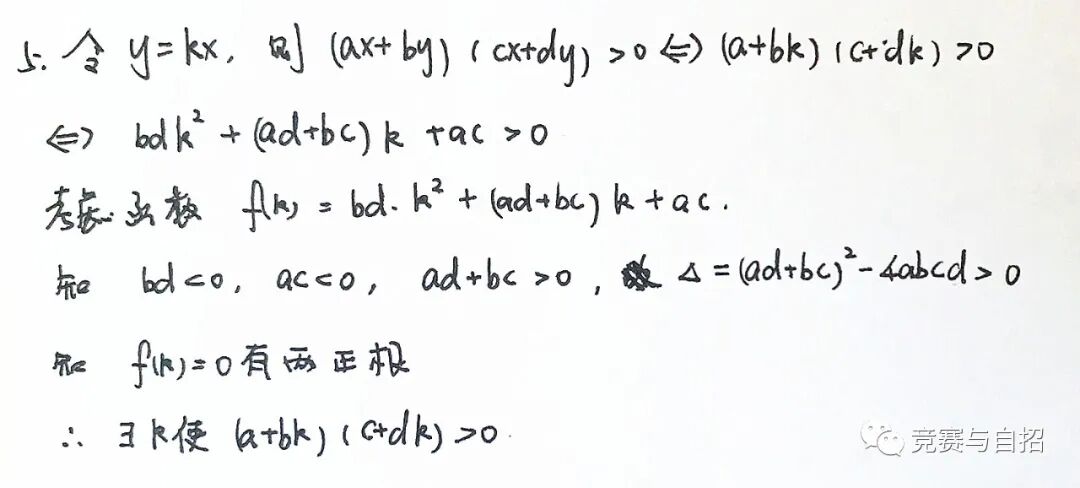 5. 令 y=kx, 则 (ax+by)(cx+dy)>0⇔(a+bk)(c+dk)>0
⇔ bdk²+(ad+bc)k+ac>0
考虑函数 f(k)=bd·k²+(ad+bc)k+ac.
知 bd<0, ac<0, ad+bc>0, Δ=(ad+bc)²-4abcd>0
知 f(k)=0有两正根
∴ ∃k使 (a+bk)(c+dk)>0
竞赛与自招